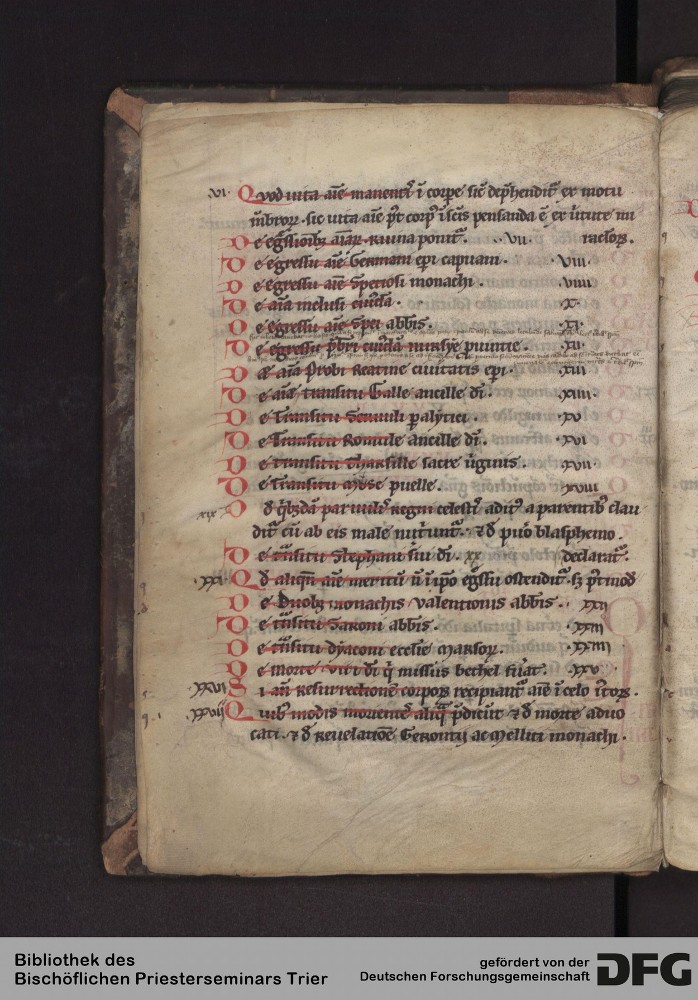 .vi. Quod uita aīe manentis ī corpe sic dephendit ex motu
mbrorz. sic uita aīe pt corp̄ ī scīs pensanda ē ex ututе mi
De egssionibz aīarz .vii. raclorz.
De egressu aīe Germani epi capuani. .viii.
De egressu aīe Speciosi monachi. viiii
De aīa inclusi eiusdā. .x.
De egressu aīe Spei abbis. .xi.
De egressu pbri eiusdā nursye puintie. .xii.
De aīa Probi Reatine ciuitatis epi. .xiii
De aīe transitu Galle ancille dī. .xiiii.
De Transitu Seruuli palytici. .xv
De Transitu Romule Ancille dī. .xvi
De transitu Tharsille sacre uginis. .xvii.
De Transitu Muse puelle. .xviii
xix Qd qbzdā par uulis regni celestis adit a parentibz clau
dit cū ab eis male nutriunt. & d puo blasphemo.
De tnsitu Stephani fui dī. xx declarat.
.xxi. Qd aliqn aīe meritū ī ipo egssu ostendit. sz pt mod
De Duobz monachis valentionis abbis. xxii
De tnsitu Surani abbis. .xxiii
De tnsitu dyaconi ecclie Marsorz. .xxiiii
De Morte uiri dī q missus bethel fuat. .xxv.
.xxvi Si an Resurrectionē corporz recipiant aīe ī celo
.xxvii Quibz modis morientes aliq pdicut & d morte aduo
cati. & d Reuelatiōe Gerontij ac Melliti monachi.
Bibliothek des
Bischöflichen Priesterseminars Trier
gefördert von der
Deutschen Forschungsgemeinschaft DFG